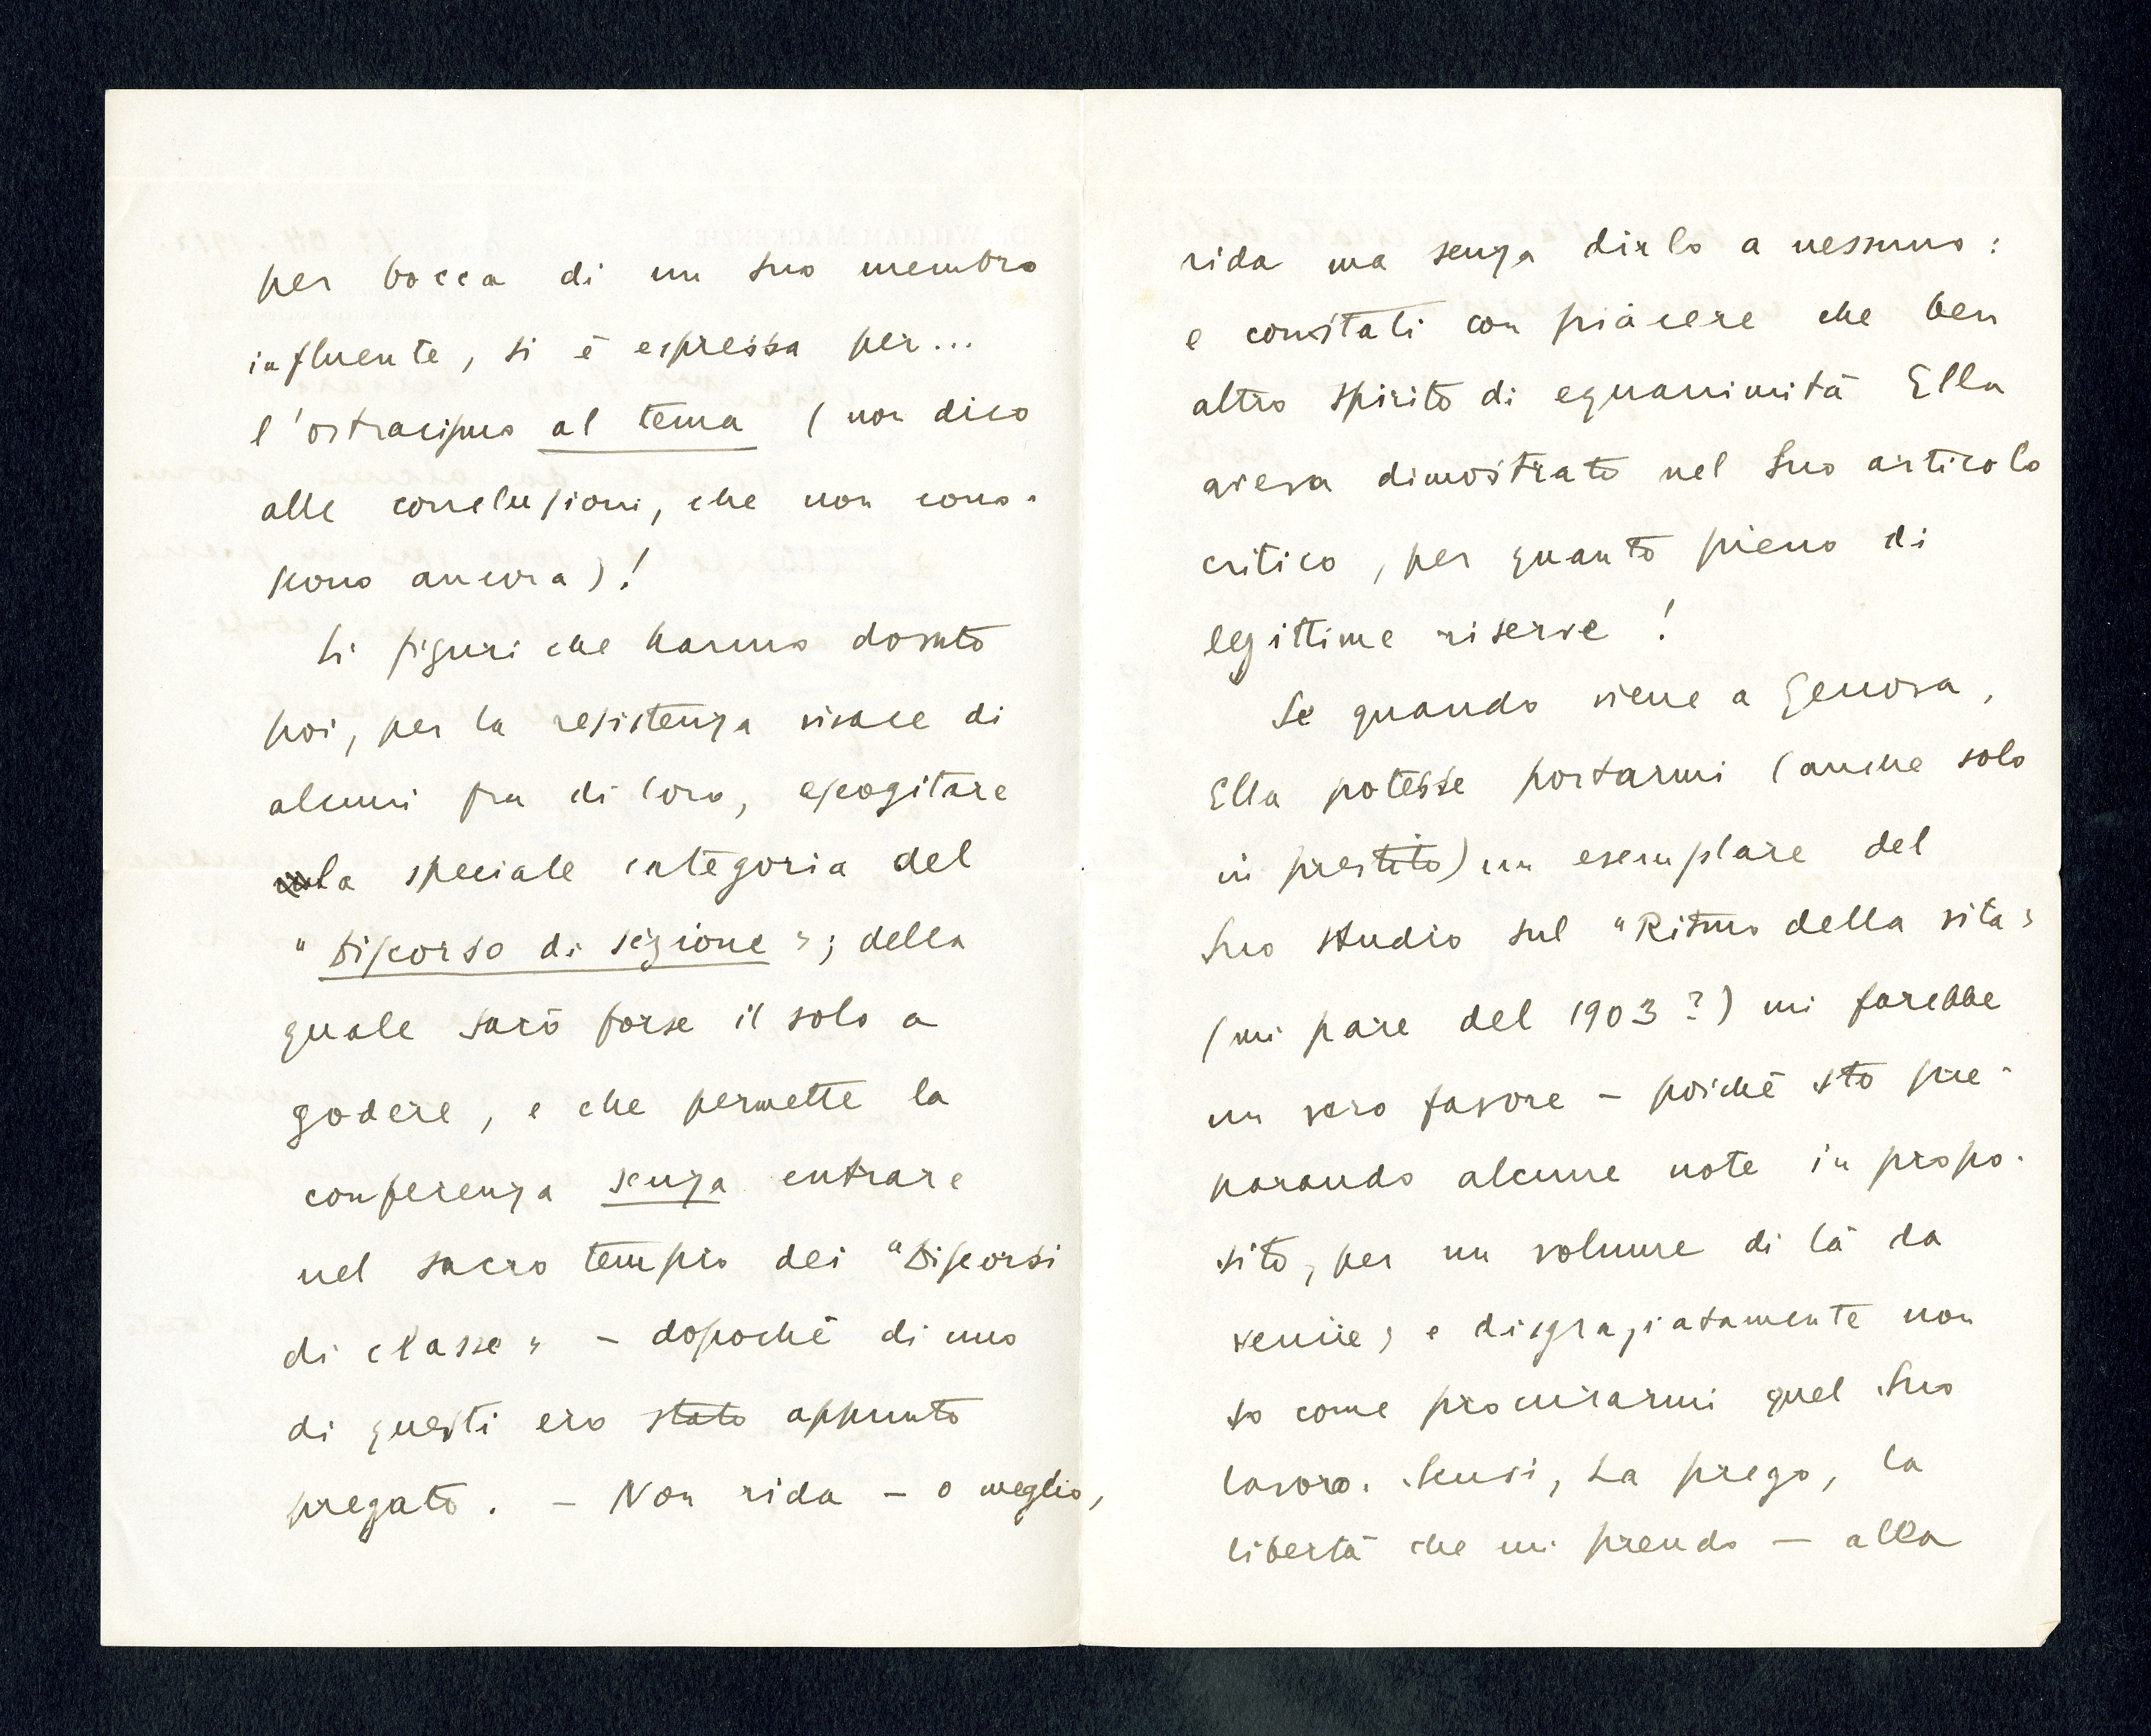 per bocca di un Suo membro
influente, si è espressa per...
l'ostracismo al tema (non dico
alle conclusioni, che non cono-
scono ancora)!
Si figuri che hanno dovuto
poi, per la resistenza vivace di
alcuni fra di loro, escogitare
la speciale categoria del
"Discorso di sezione"; della
quale sarò forse il solo a
godere, e che permette la
conferenza senza entrare
nel sacro tempio dei "Discorsi
di classe" - dopochè di uno
di questi ero stato appunto
pregato. - Non rida - o meglio,
rida ma senza dirlo a nessuno:
e constati con piacere che ben
altro spirito di equanimità Ella
aveva dimostrato nel Suo articolo
critico, per quanto pieno di
legittime riserve!
Se quando viene a Genova,
Ella potesse portarmi (anche solo
in prestito) un esemplare del
Suo studio sul "Ritmo della vita"
(mi pare del 1903?) mi farebbe
un vero favore - poichè sto pre-
parando alcune note in propo-
sito, per un volume di là da
venire; e disgraziatamente non
so come procurarmi quel Suo
lavoro. Scusi, La prego, la
libertà che mi prendo - alla